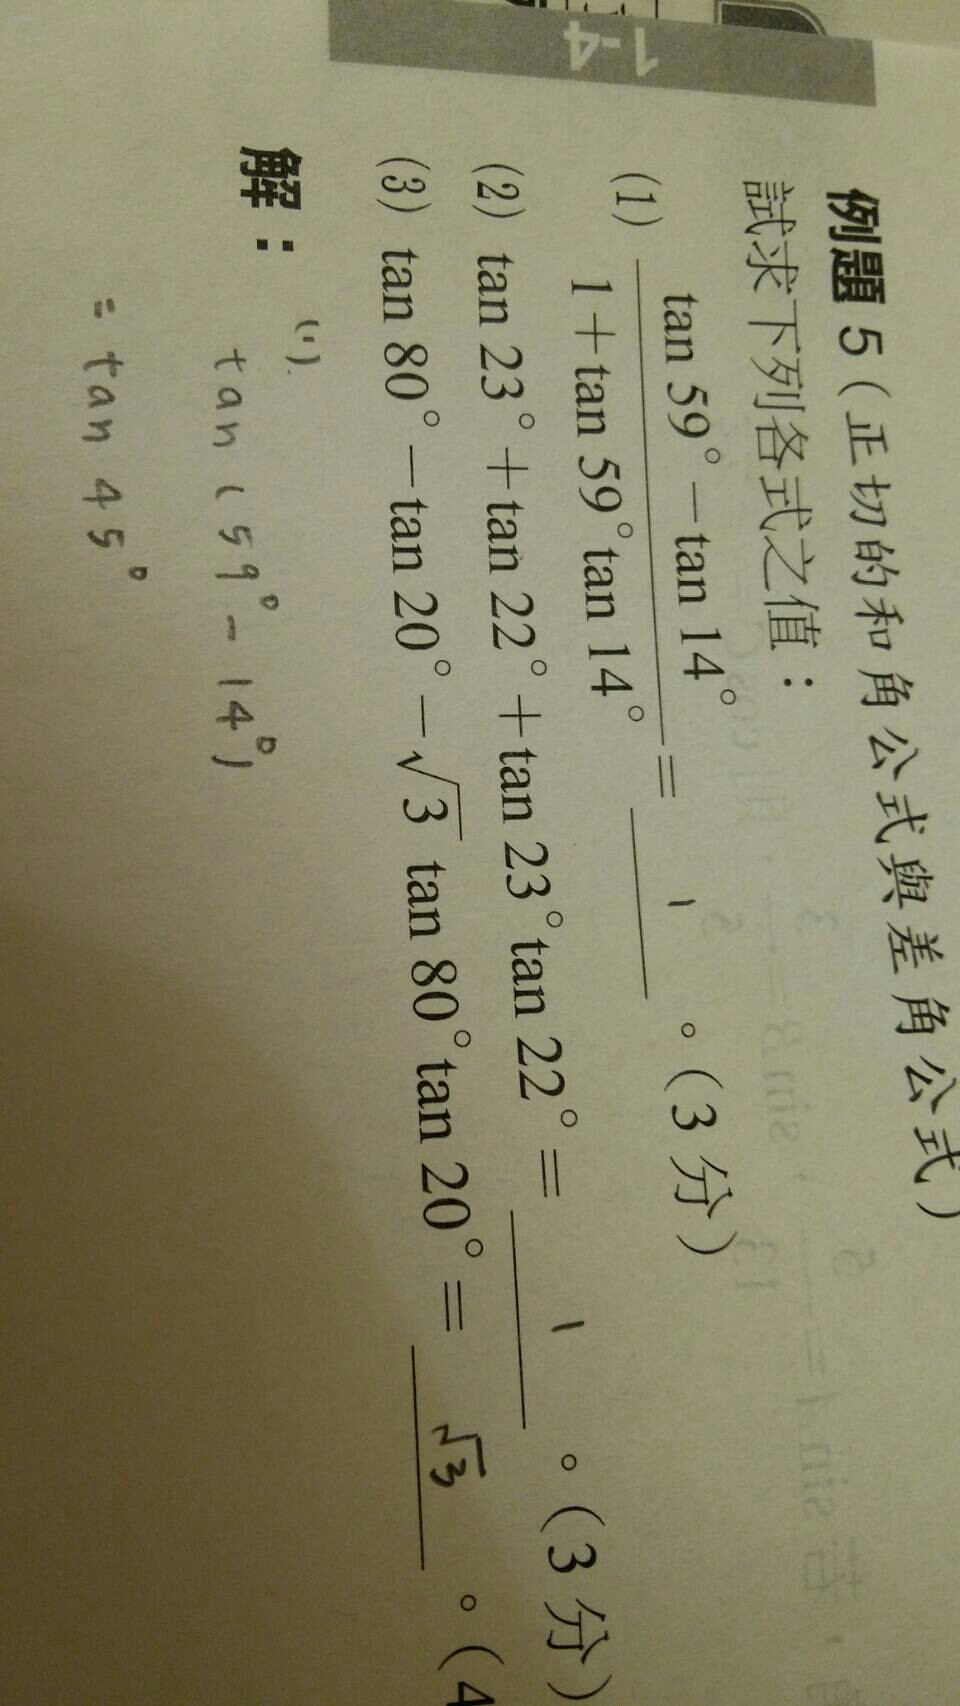 1-4
例題 5 (正切的和角公式與差角公式)
試求下列各式之值：
(1) tan 59° − tan 14°
1 + tan 59° tan 14° = 1 。(3 分)
(2) tan 23° + tan 22° + tan 23° tan 22° = 1 。(3 分)
(3) tan 80° − tan 20° − √3 tan 80° tan 20° = √3 。(4
解：
(1).
tan (59° − 14°)
= tan 45°